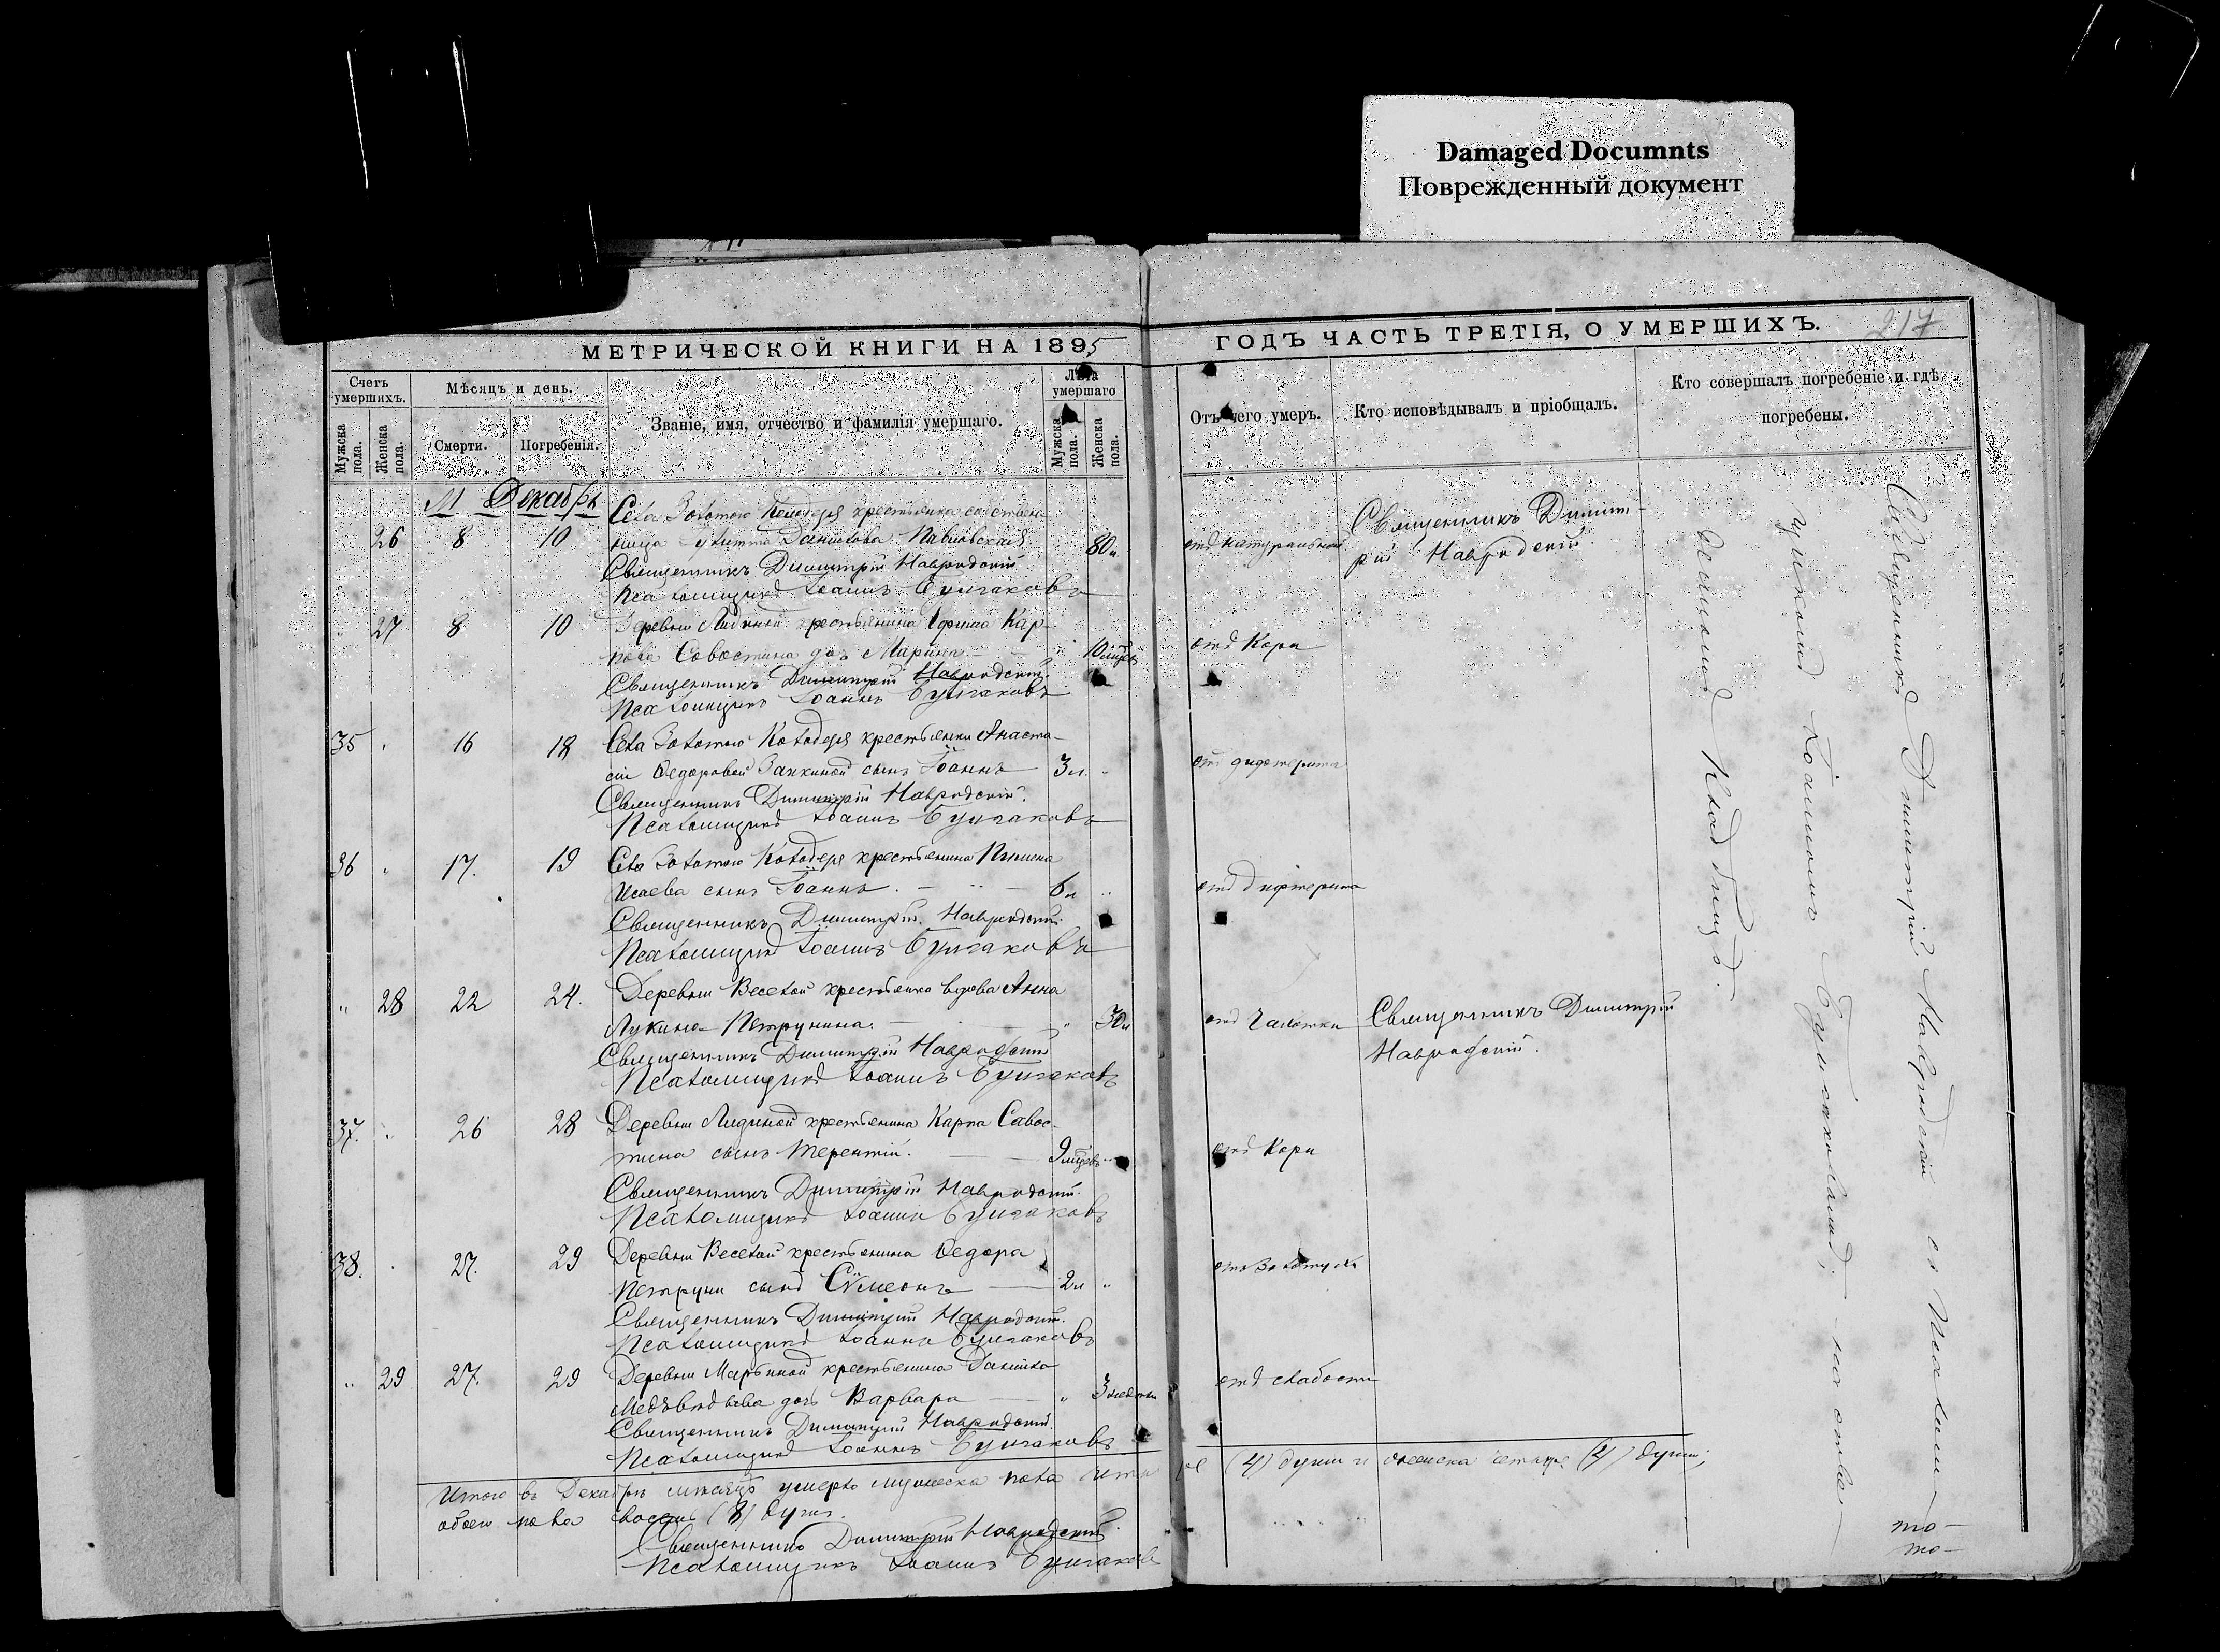 Damaged Documnts
Поврежденный документ
МЕТРИЧЕСКОЙ КНИГИ НА 1895
ГОДЪ ЧАСТЬ ТРЕТІЯ, О УМЕРШИХЪ.
217
Счетъ умершихъ.
Мѣсяцъ и день.
Званіе, имя, отчество и фамилія умершаго.
Лѣта умершаго
Отъ чего умеръ.
Кто исповѣдывалъ и пріобщалъ.
Кто совершалъ погребеніе и гдѣ погребены.
Мужска пола.
Женска пола.
Смерти.
Погребенія.
Мужска пола.
Женска пола.
М Декабрь
Села Золотого Колодезя крестьянка собствен-
26 8 10 ница Данилова Павловская. 80 л. отъ натуральной
Священникъ Димит-
рій Навродскій.
Священникъ Димитрій Навродскій.
Псаломщикъ Іоаннъ Булгаковъ
27 8 10 Деревни Лидиной крестьянина Ефима Кар-
пова Совостина дочь Марина 10 мцевъ отъ Кори
Священникъ Димитрій Навродскій.
Псаломщикъ Іоаннъ Булгаковъ
35 16 18 Села Золотого Колодезя крестьянки Анаста-
сіи Ѳедоровой Заикиной сынъ Іоаннъ 3 л. отъ дифтерита
Священникъ Димитрій Навродскій.
Псаломщикъ Іоаннъ Булгаковъ
36 17. 19 Села Золотого Колодезя крестьянина Пимена
Исаева сынъ Іоаннъ. 6 л отъ дифтерита
Священникъ Димитрій Навродскій.
Псаломщикъ Іоаннъ Булгаковъ
28 22 24. Деревни Веселой крестьянка вдова Анна
Лукина Петрунина. 30 л отъ Чахотки
Священникъ Димитрій
Навродскій.
Священникъ Димитрій Навродскій
Псаломщикъ Іоаннъ Булгаковъ
37. 26 28 Деревни Лидиной крестьянина Карпа Савос-
тина сынъ Терентій. 9 мцевъ отъ Кори
Священникъ Димитрій Навродскій.
Псаломщикъ Іоаннъ Булгаковъ
38. 27. 29 Деревни Веселой крестьянина Ѳедора
Петруни сынъ Сѷмеонъ 2 л отъ Золотухи
Священникъ Димитрій Навродскій.
Псаломщикъ Іоаннъ Булгаковъ
29 27. 29 Деревни Марьиной крестьянина Данила
Медвѣдева дочь Варвара 3 недѣли отъ слабости
Священникъ Димитрій Навродскій.
Псаломщикъ Іоаннъ Булгаковъ
Итого въ Декабрѣ мѣсяцѣ умерло мужеска пола четы ре (4) души и женска четыре (4) души;
обоего пола восемь (8) душъ.
Священникъ Димитрій Навродскій.
Псаломщикъ Іоаннъ Булгаковъ
Священникъ Димитрій Навродскій съ Псаломщикомъ Іоанномъ Булгаковымъ; на
кладбищѣ.